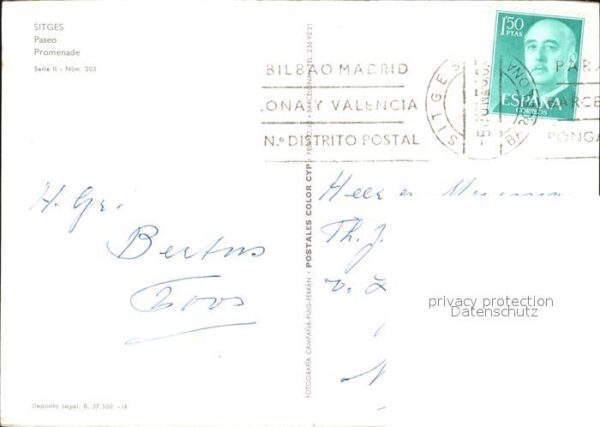 SITGES
Paseo
Promenade
Serie II - Núm. 203
BILBAO MADRID
ONA Y VALENCIA
N.º DISTRITO POSTAL
SITGES
1'50
PTAS
ESPAÑA
CORREOS
PARA
BARCE
PONGA
H. Gr.
Bertus
Toos
POSTALES COLOR CYP
FOTOGRAFIA CAMPAÑA-PUIG-FERRÁN
Heer en Mevrouw
Th. J.
v.
privacy protection
Datenschutz
Depósito Legal: B. 37.560